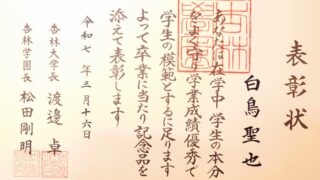 表彰状
白鳥聖也
あなたは在学中 学生の本分
をよく守り学業成績優秀で
学生の模範とするに足ります
よって卒業に当たり記念品を
添えて表彰します
令和七年三月十六日
杏林大学長 渡邊 卓
杏林学園長 松田剛明